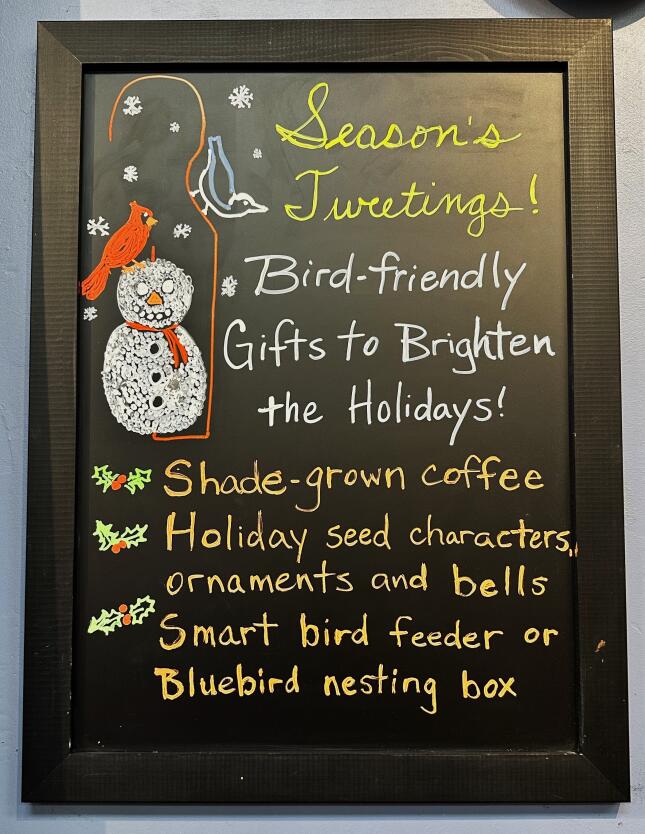 Season's
Tweetings!
Bird-friendly
Gifts to Brighten
the Holidays!
Shade-grown coffee
Holiday seed characters,
ornaments and bells
Smart bird feeder or
Bluebird nesting box